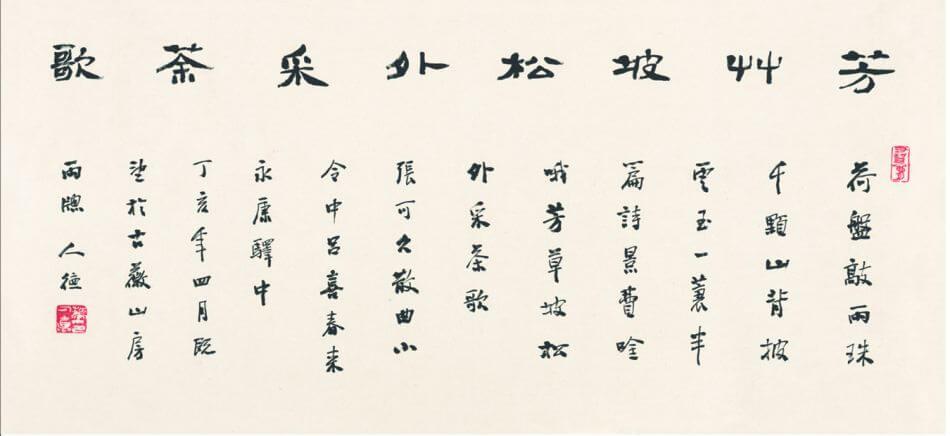 芳艸坡松外采茶歌
荷盤敲雨珠
千顆山背披
雲玉一蓑半
篇詩景費唫
哦芳草坡松
外采茶歌
張可久散曲小
令中呂喜春來
永康驛中
丁亥年四月既
望於古薇山房
雨牕人德